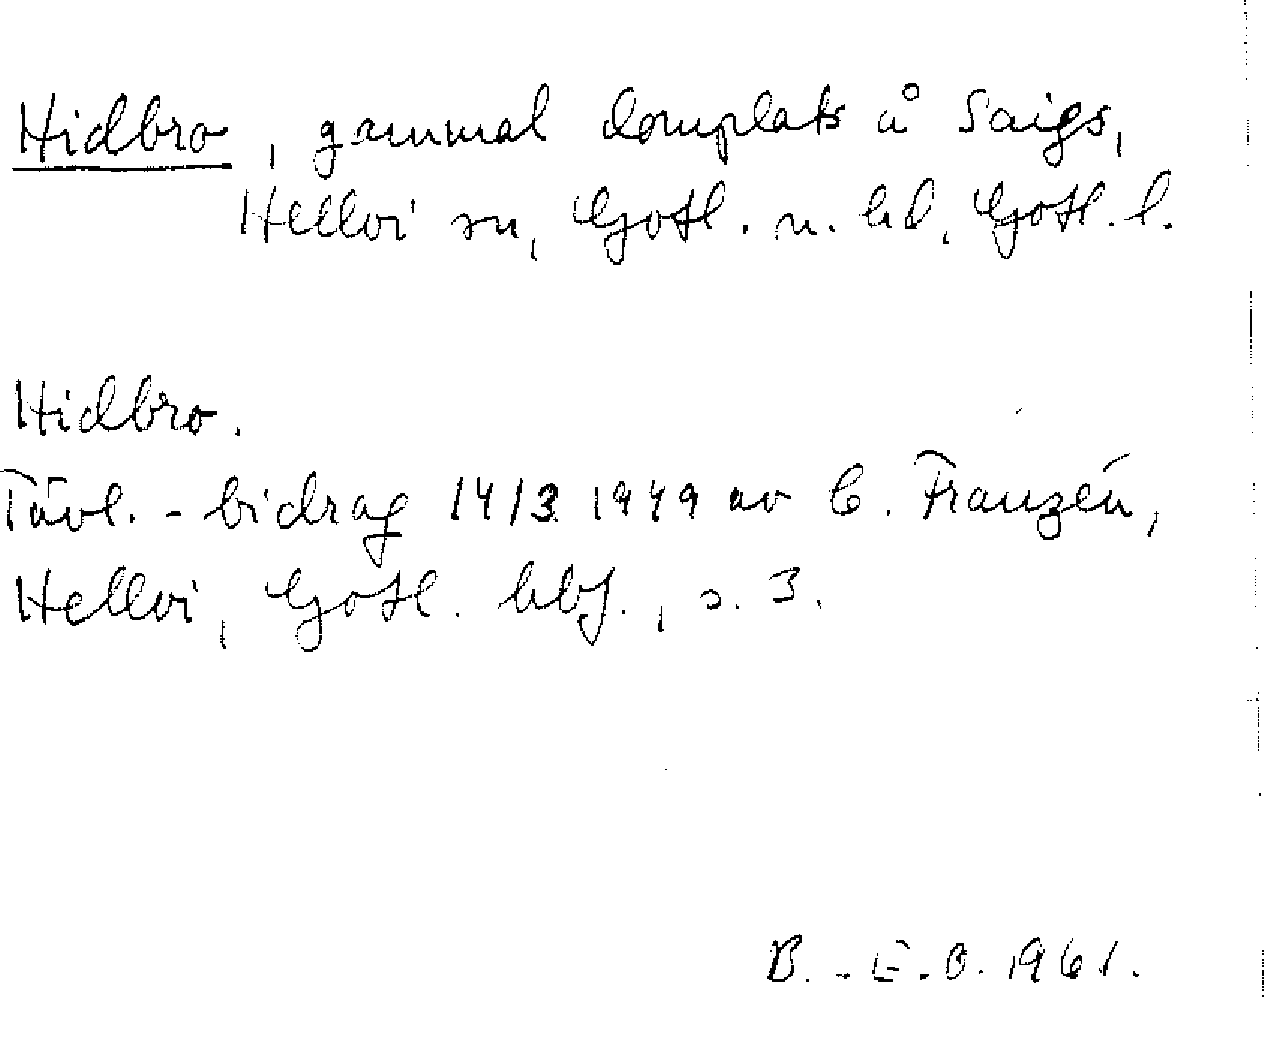 Hidbro, gammal tomplats å Saigs,
Hellvi sn, Gotl. n. hd, Gotl. l.
Hidbro.
Tävl.-bidrag 14/3 1949 av C. Franzén,
Hellvi, Gotl. hbf., s. 3.
B.-E.O. 1961.